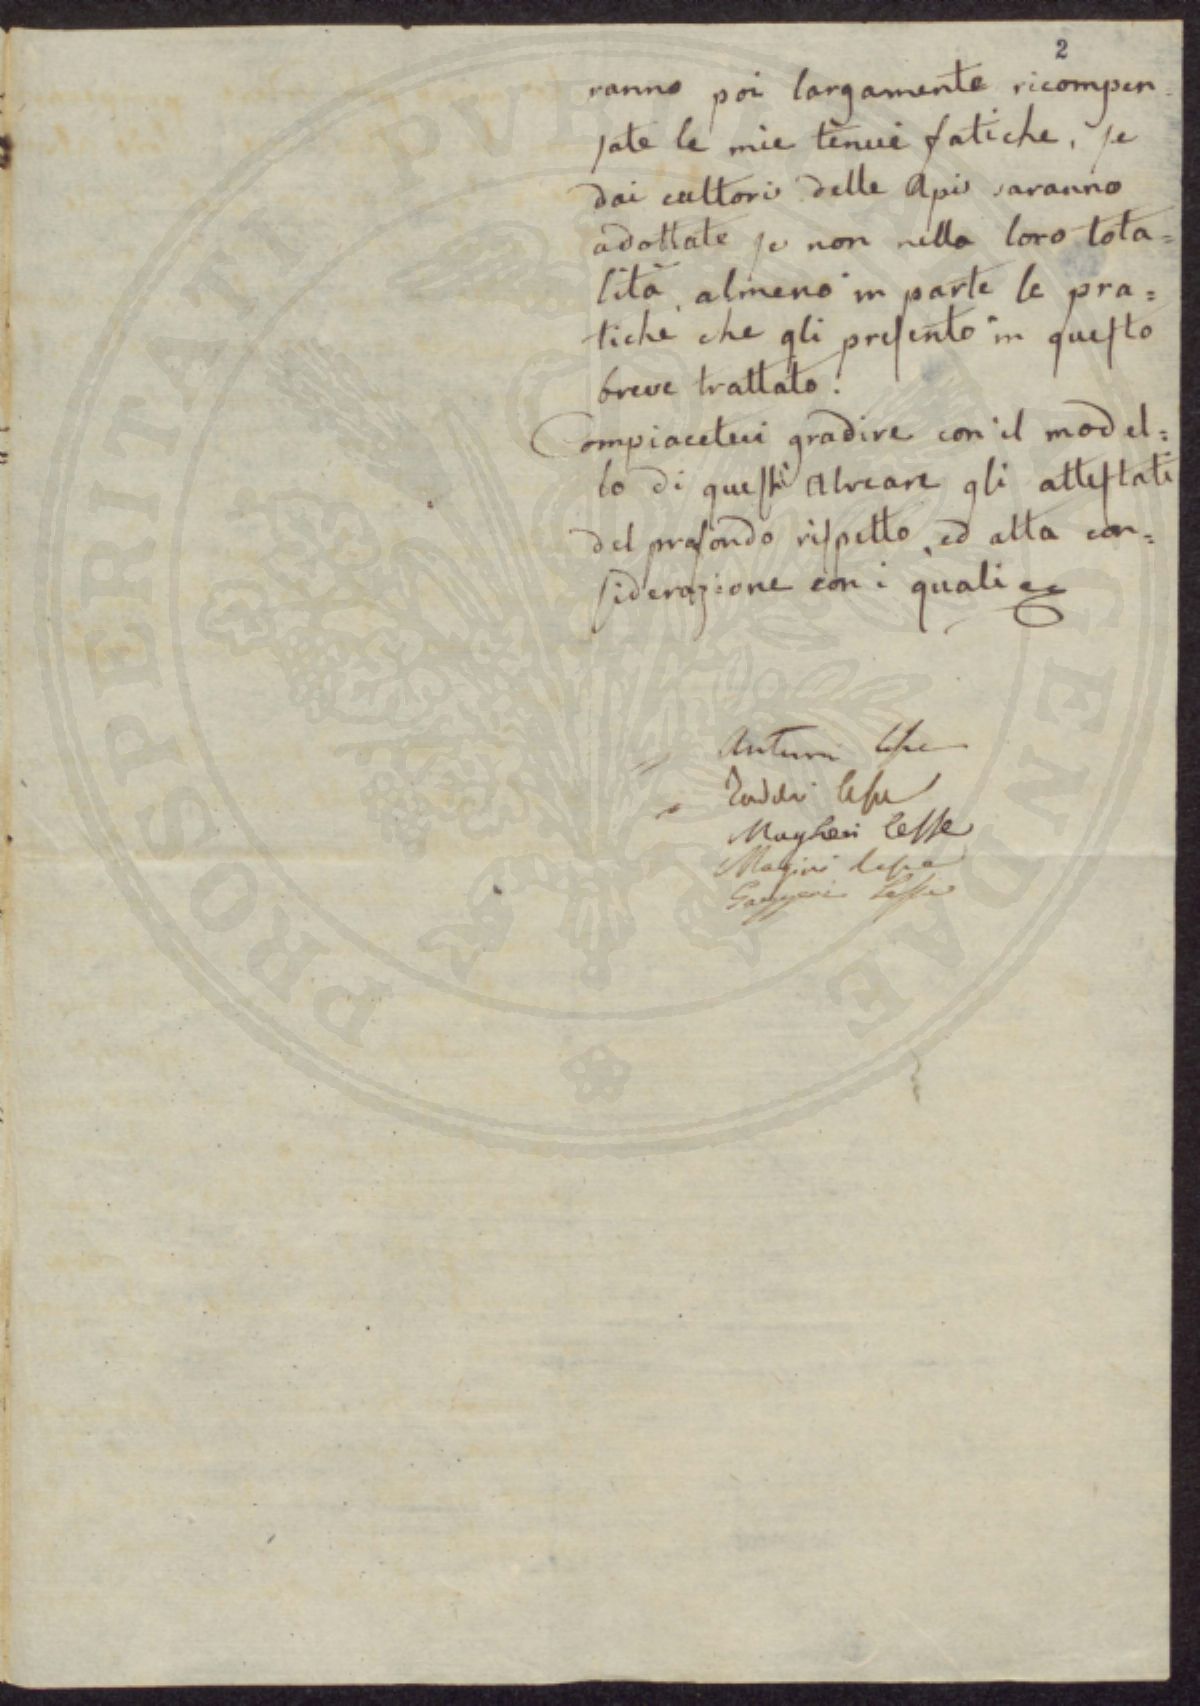 2
ranno poi largamente ricompen-
sate le mie tenui fatiche, se
dai cultori delle Api saranno
adottate se non nella loro tota=
lità, almeno in parte le pra=
tiche che gli presento in questo
breve trattato.
Compiacetevi gradire con il model=
lo di questi Alveare gli attestati
del profondo rispetto, ed alta con=
siderazione con i quali
Taddei lesse
Magheri lesse
Magini lesse
Gazzeri lesse
PROSPERITATI PVBLICAE AVGENDAE